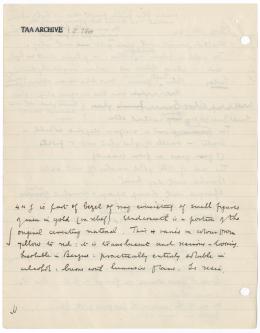 TAA ARCHIVE
4 is part of bezel of ring consisting of small figures
of men in gold (in relief). Underneath is a portion of the
original cementing material. This varies in colour from
yellow to red: it is translucent and resinous looking.
Insoluble in : practically entirely soluble in
alcohol: burns with luminous flame. Is resin